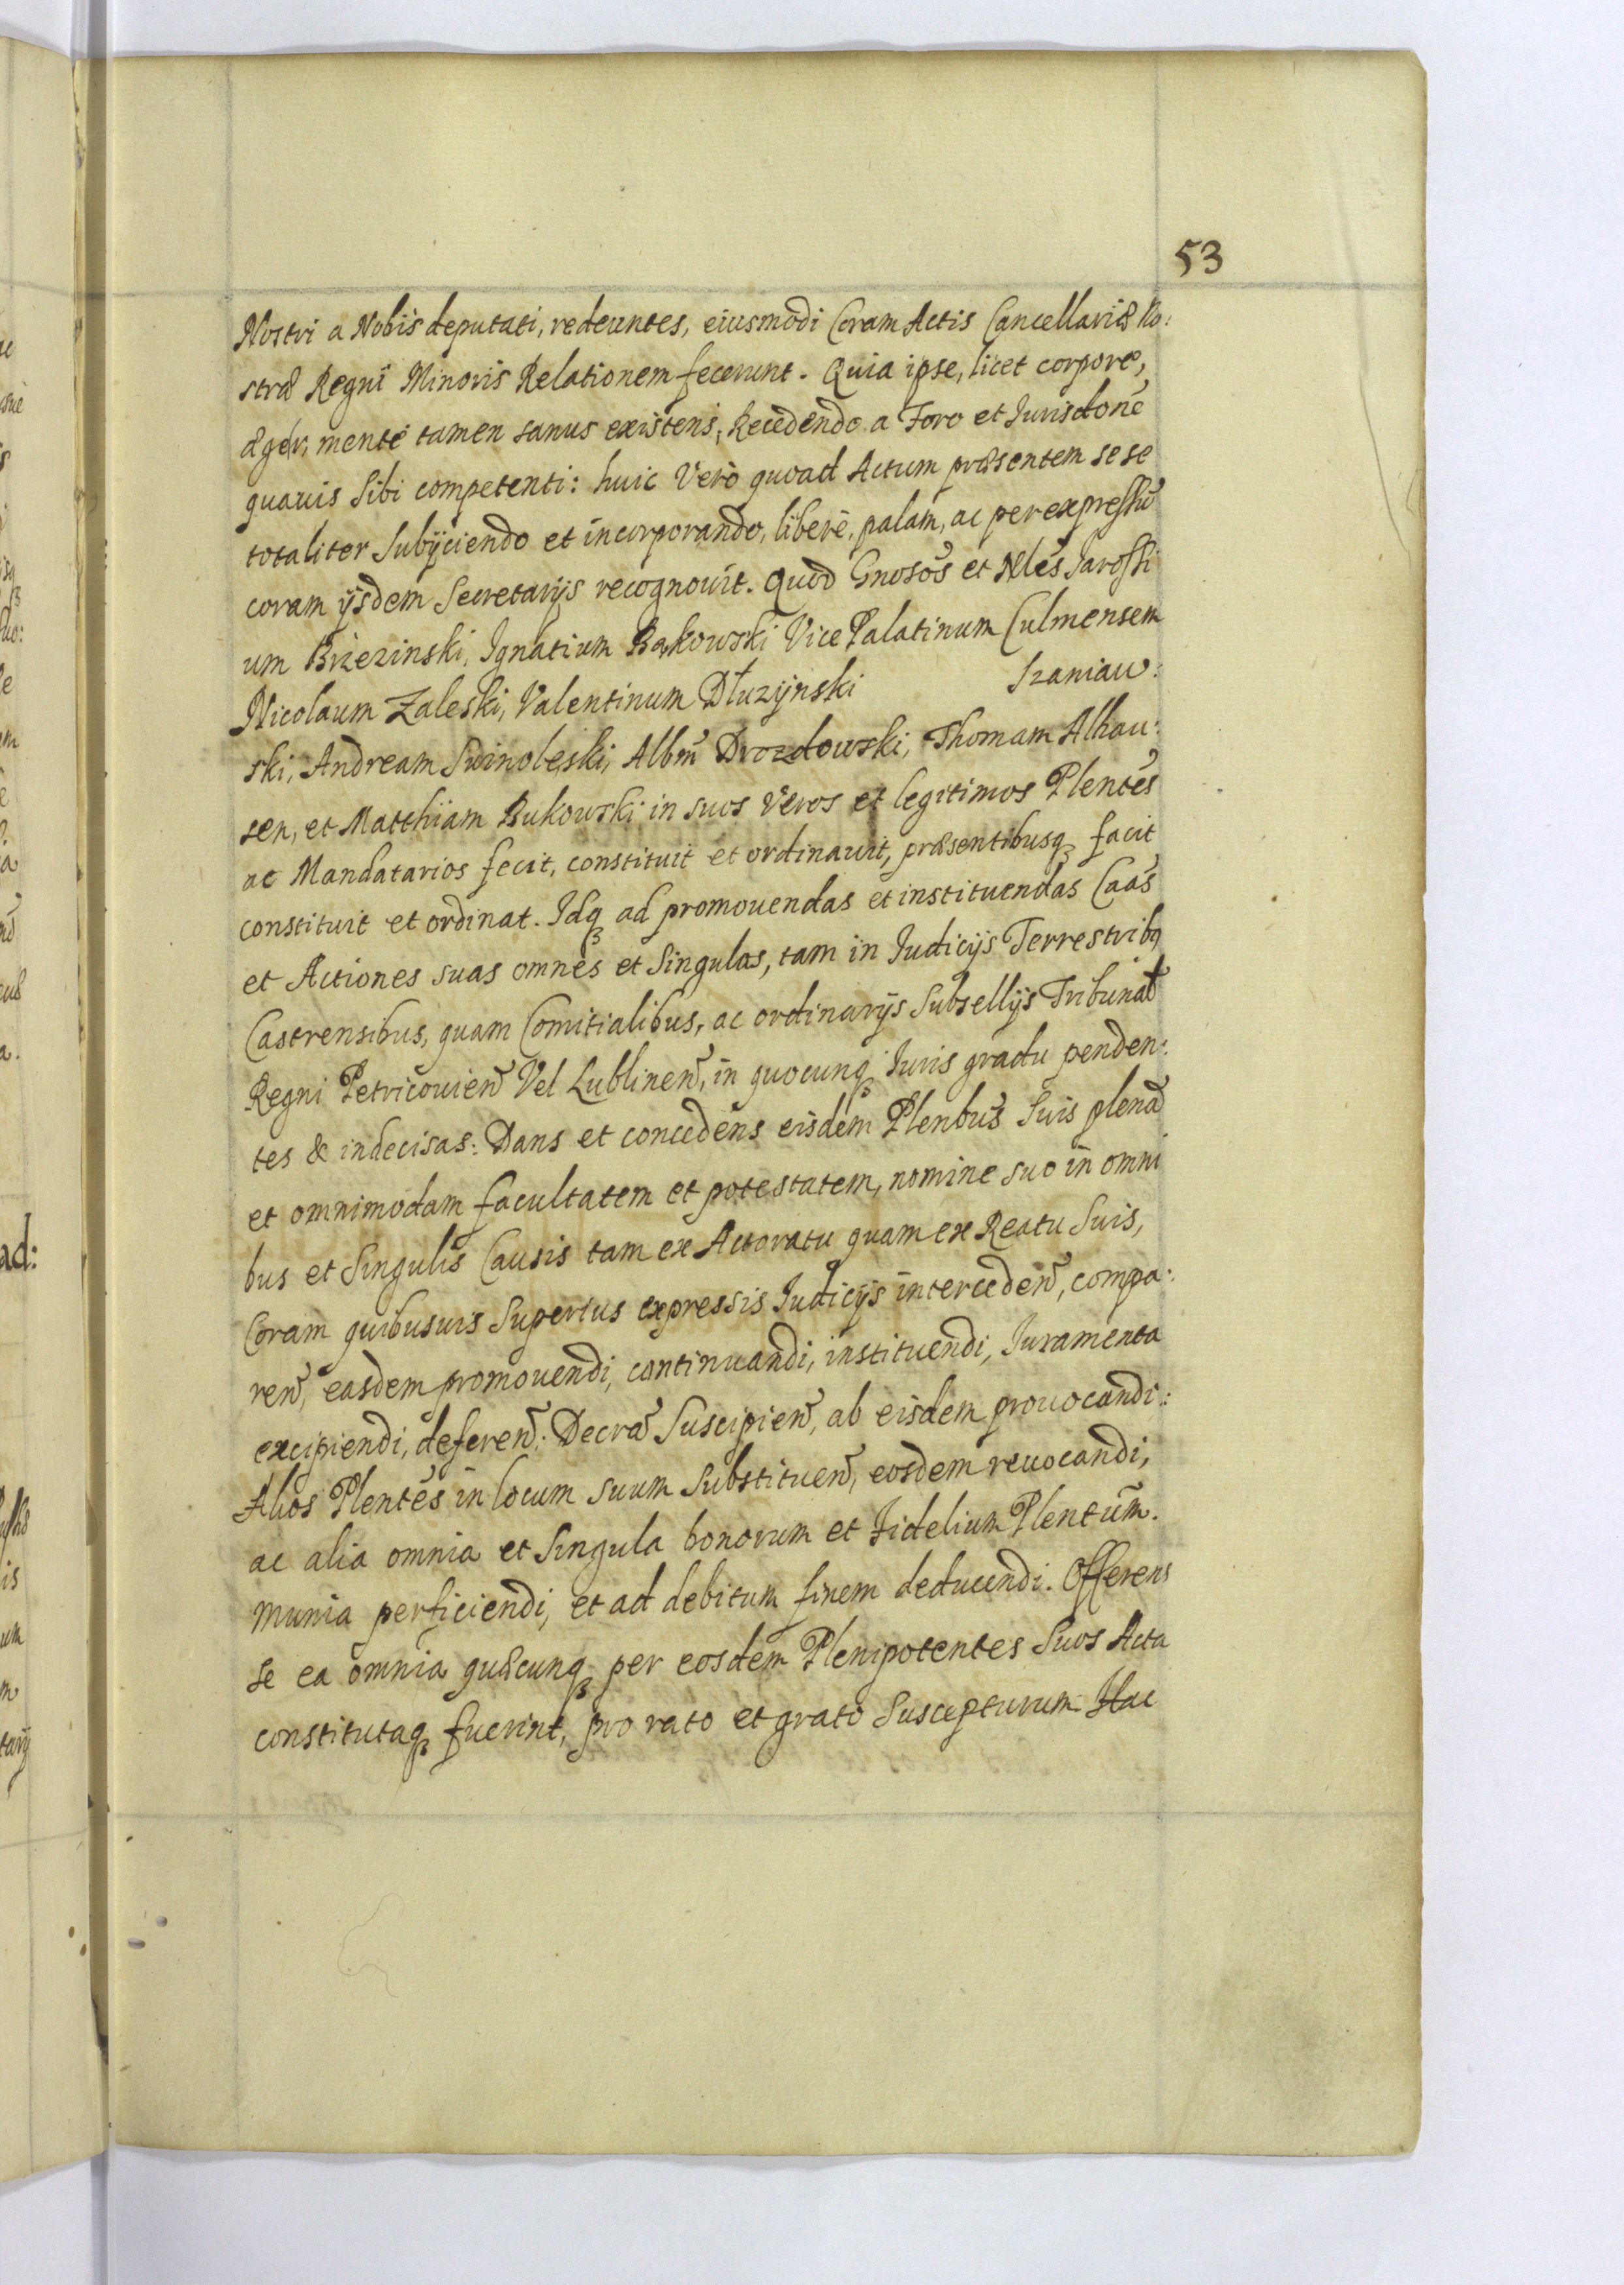 53
Nostri a Nobis deputati, redeuntes, eiusmodi Coram Actis Cancellariæ No:
stræ Regni Minoris Relationem fecerunt. Quia ipse, licet corpore,
æger, mente tamen sanus existens, Recedendo a Foro et Jurisdone
quauis Sibi competenti: huic Verò quoad Actum præsentem sese
totaliter Subÿciendo et incorporando, liberè, palam, ac per expressũ
coram ÿsdem Secretarÿs recognouit. Quod Gnosos̃ et Nles̃ Jarossi
um Brzezinski, Ignatium Bąkowski Vice Palatinum Culmensem
Nicolaum Zaleski, Valentinum Dłuzÿnski Szaniaw:
ski, Andream Swinoleski, Albm̃ Drozdowski, Thomam Alhau:
sen, et Matthiam Bukowski in suos Veros et legitimos Plentes̃
ac Mandatarios fecit, constituit et ordinauit, præsentibusqꝫ facit
constituit et ordinat. Idqꝫ ad promouendas et instituendas Caas̃
et Actiones suas omnes et Singulas, tam in Judicÿs Terrestribq
Castrensibus, quam Comitialibus, ac ordinarÿs Subsellÿs Tribunał
Regni Petricouien̄ Vel Lublinen̄, in quocunqꝫ Juris gradu penden:
tes & indecisas: Dans et concedens eisdem Plenbus̃ Suis plenã
et omnimodam facultatem et potestatem, nomine suo in omni
bus et Singulis Causis tam ex Actoratu quam ex Reatu Suis,
Coram quibusuis Superius expressis Judicÿs interceden̄, compa:
ren̄, easdem promouendi, continuandi, instituendi, Juramenta
excipiendi, deferen̄: Decra͂ Suscipien̄, ab eisdem prouocandi:
Alios Plentes̃ in locum suum Substituen̄, eosdem reuocandi,
ac alia omnia et Singula bonorum et Fidelium Plentum̃.
munia perficiendi, et ad debitum finem deducendi. Offerens
se ea omnia quæcunqꝫ per eosdem Plenipotentes Suos Acta
constitutaqꝫ fuerint, pro rato et grato Suscepturum. Hac